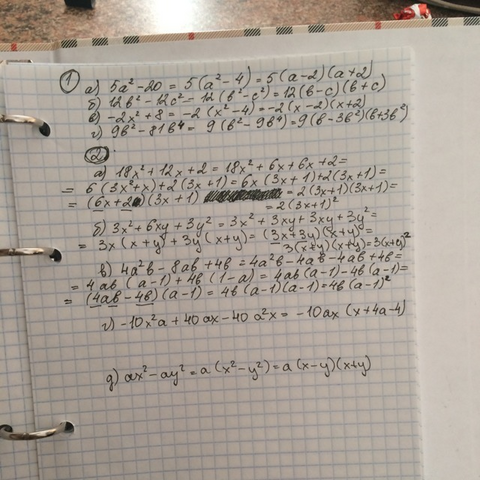 1 а) 5a² - 20 = 5(a² - 4) = 5(a-2)(a+2)
б) 12b² - 12c² = 12(b² - c²) = 12(b-c)(b+c)
в) -2x² + 8 = -2(x² - 4) = -2(x-2)(x+2)
г) 9b² - 81b⁴ = 9(b² - 9b⁴) = 9(b - 3b²)(b+3b²)
2.
а) 18x² + 12x + 2 = 18x² + 6x + 6x + 2 =
= 6(3x²+x) + 2(3x+1) = 6x(3x+1) + 2(3x+1) =
= (6x+2)(3x+1) = 2(3x+1)(3x+1) =
= 2(3x+1)²
б) 3x² + 6xy + 3y² = 3x² + 3xy + 3xy + 3y² =
= 3x(x+y) + 3y(x+y) = (3x+3y)(x+y) =
3(x+y)(x+y) = 3(x+y)²
в) 4a²b - 8ab + 4b = 4a²b - 4ab - 4ab + 4b =
= 4ab(a-1) + 4b(1-a) = 4ab(a-1) - 4b(a-1) =
= (4ab - 4b)(a-1) = 4b(a-1)(a-1) = 4b(a-1)²
г) -10x²a + 40ax - 40a²x = -10ax(x+4a-4)
д) ax² - ay² = a(x² - y²) = a(x-y)(x+y)